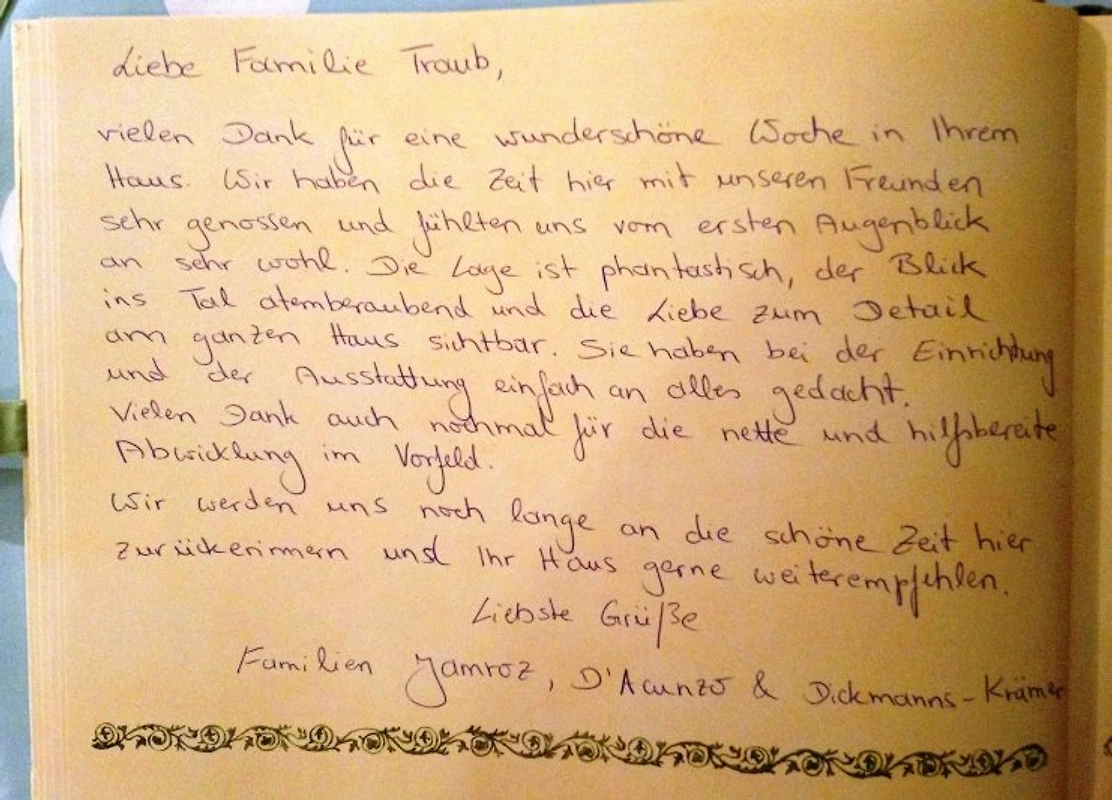 Liebe Familie Traub,
vielen Dank für eine wunderschöne Woche in Ihrem
Haus. Wir haben die Zeit hier mit unseren Freunden
sehr genossen und fühlten uns vom ersten Augenblick
an sehr wohl. Die Lage ist phantastisch, der Blick
ins Tal atemberaubend und die Liebe zum Detail
am ganzen Haus sichtbar. Sie haben bei der Einrichtung
und der Ausstattung einfach an alles gedacht.
Vielen Dank auch nochmal für die nette und hilfsbereite
Abwicklung im Vorfeld.
Wir werden uns noch lange an die schöne Zeit hier
zurückerinnern und Ihr Haus gerne weiterempfehlen.
Liebste Grüße
Familien Jamroz, D'Acunzo & Dickmanns-Krämer